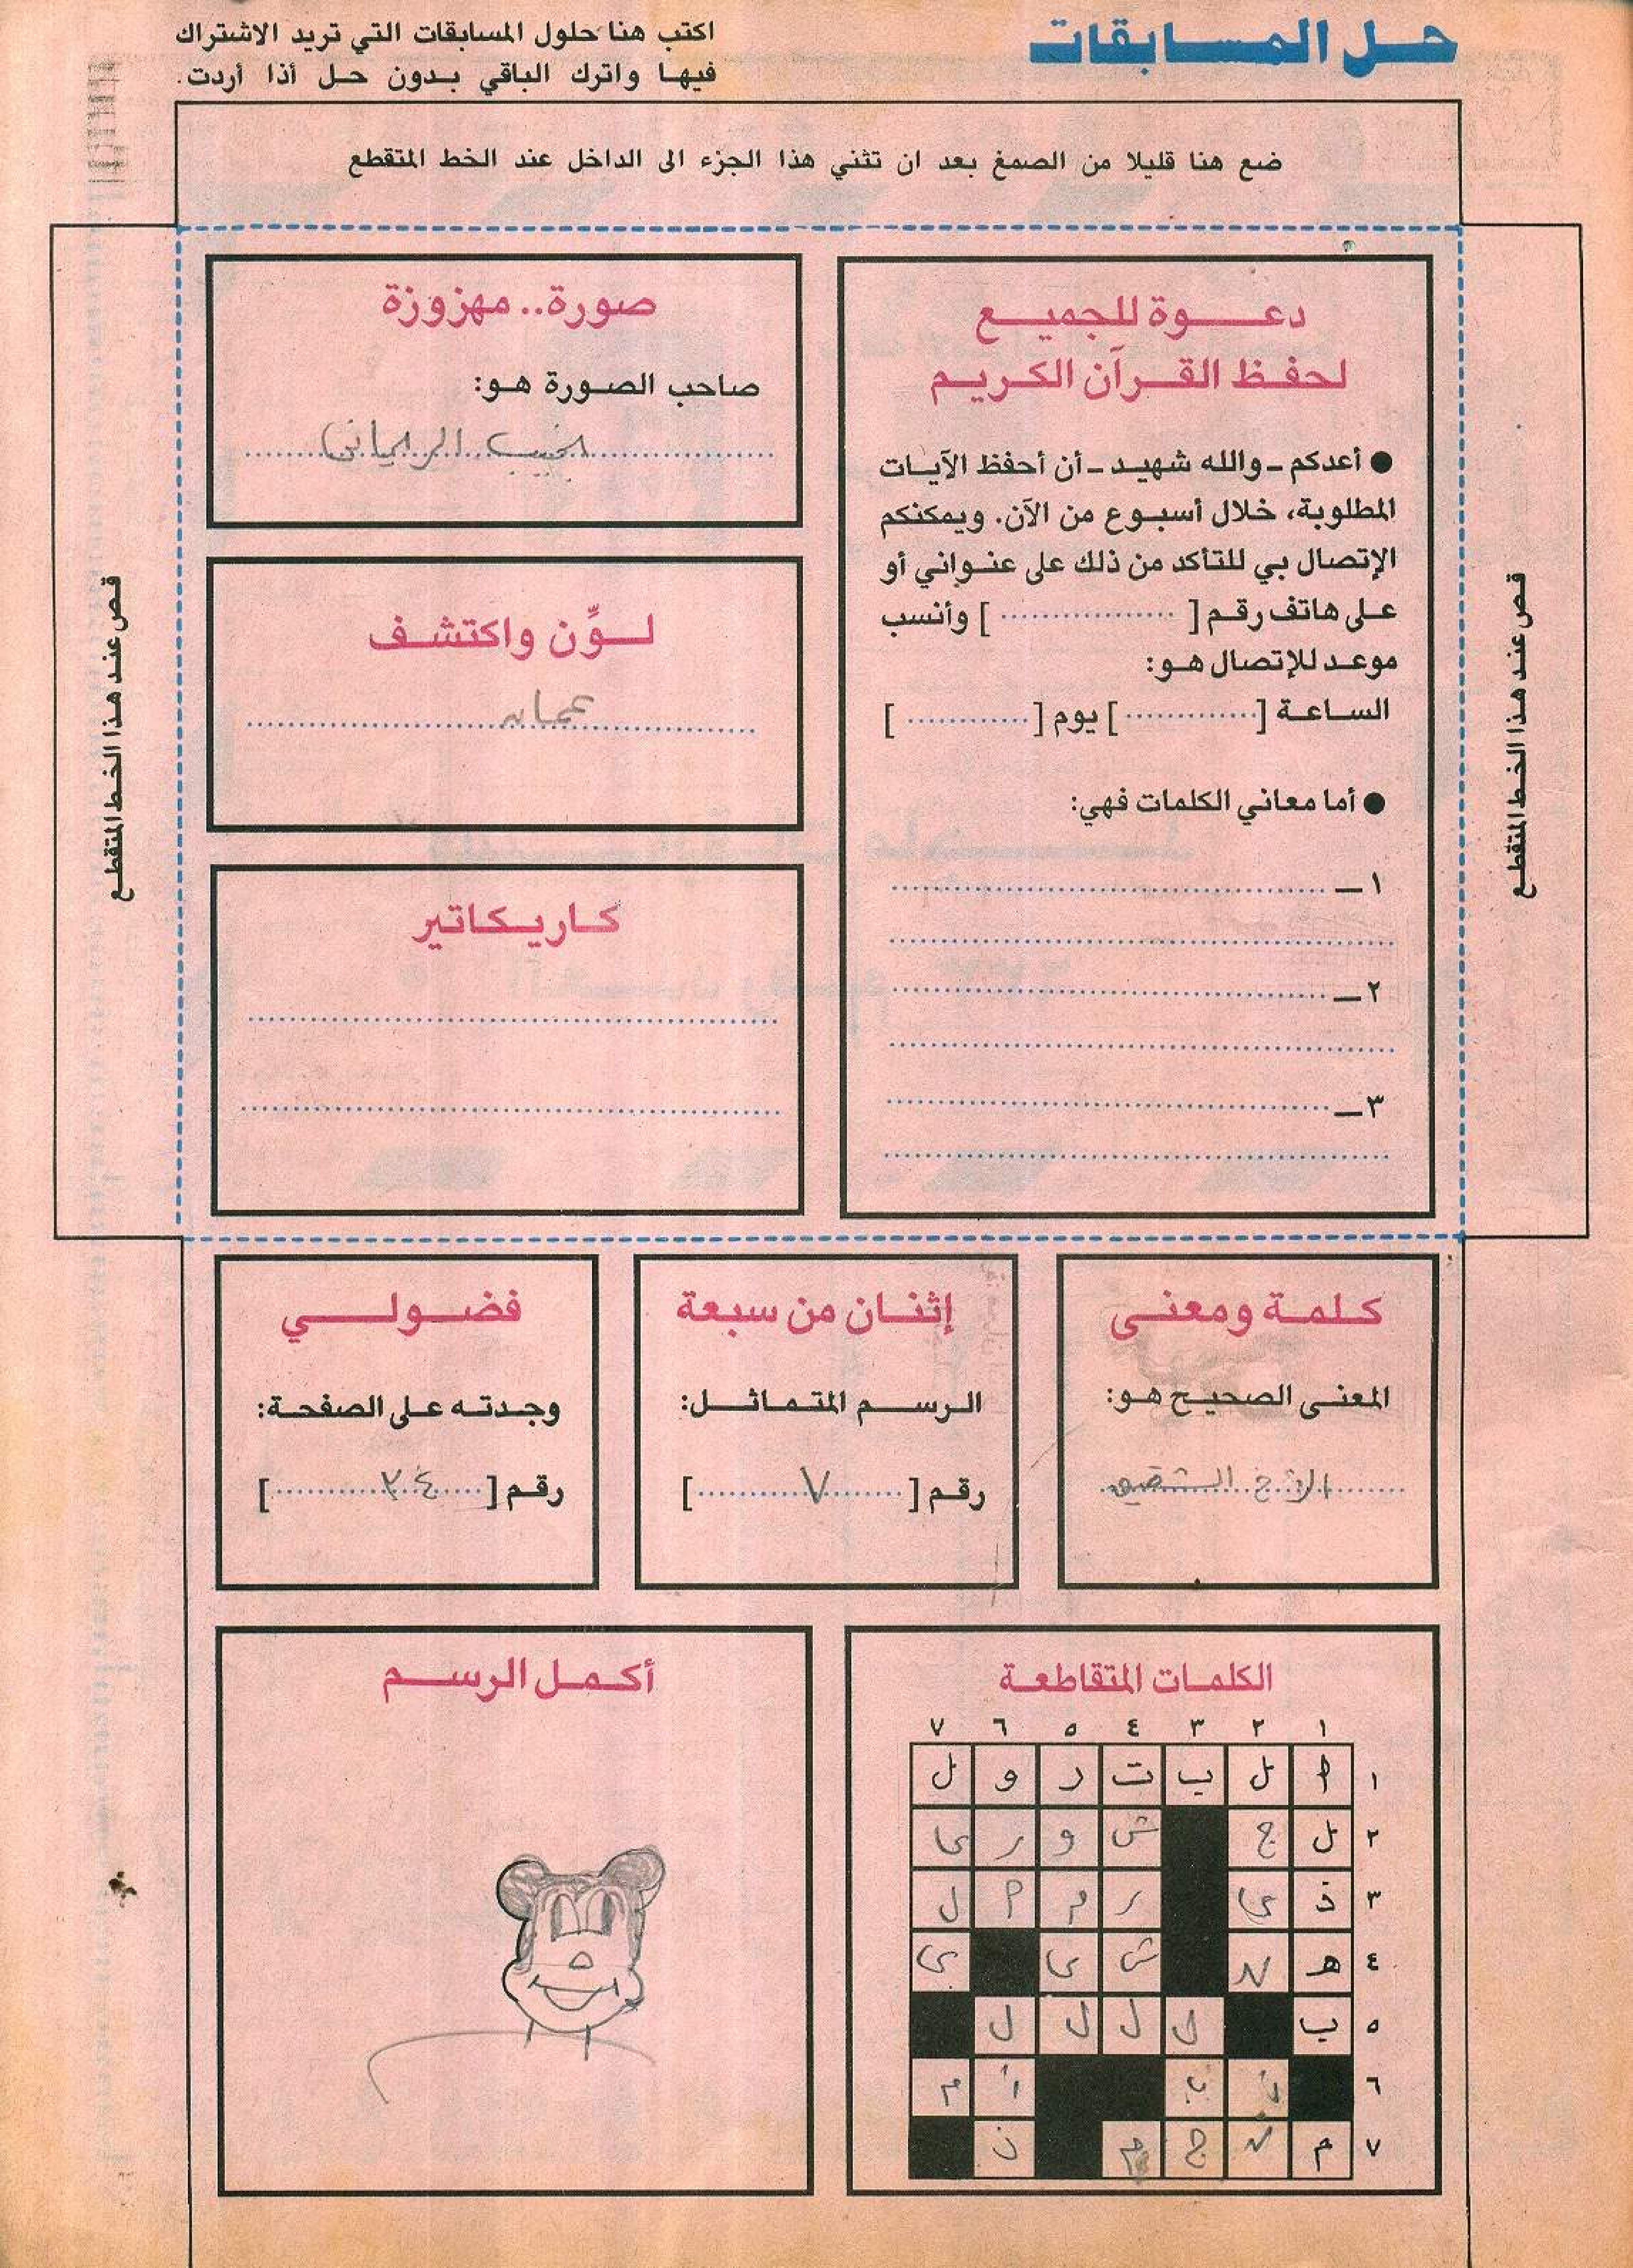 حل المسابقات
اكتب هنا حلول المسابقات التي تريد الاشتراك
فيها واترك الباقي بدون حل أذا أردت.
ضع هنا قليلا من الصمغ بعد ان تثني هذا الجزء الى الداخل عند الخط المتقطع
قص عند هذا الخط المتقطع
دعوة للجميع
لحفظ القرآن الكريم
● أعدكم ـ والله شهيد ـ أن أحفظ الآيات
المطلوبة، خلال أسبوع من الآن. ويمكنكم
الإتصال بي للتأكد من ذلك على عنواني أو
على هاتف رقم [ .................. ] وأنسب
موعد للإتصال هو:
الساعة [ .............. ] يوم [ ............. ]
● أما معاني الكلمات فهي:
١ ـ
٢ ـ
٣ ـ
صورة.. مهزوزة
صاحب الصورة هو:
نجيب الريحاني
لوِّن واكتشف
كاريكاتير
قص عند هذا الخط المتقطع
كلمة ومعنى
المعنى الصحيح هو:
الأخ الشقيق
إثنان من سبعة
الرسم المتماثل:
رقم [ ٧ ]
فضولي
وجدته على الصفحة:
رقم [ ٣٤ ]
الكلمات المتقاطعة
١ ٢ ٣ ٤ ٥ ٦ ٧
١ ا ل ب ت ر و ل
٢ ل ج ش و ر ى
٣ ذ ي ر م ا ل
٤ هـ ن ش ي ي
٥ ب ل ل ل ل
٦ ب أ م
٧ م ن ج م ن
أكمل الرسم